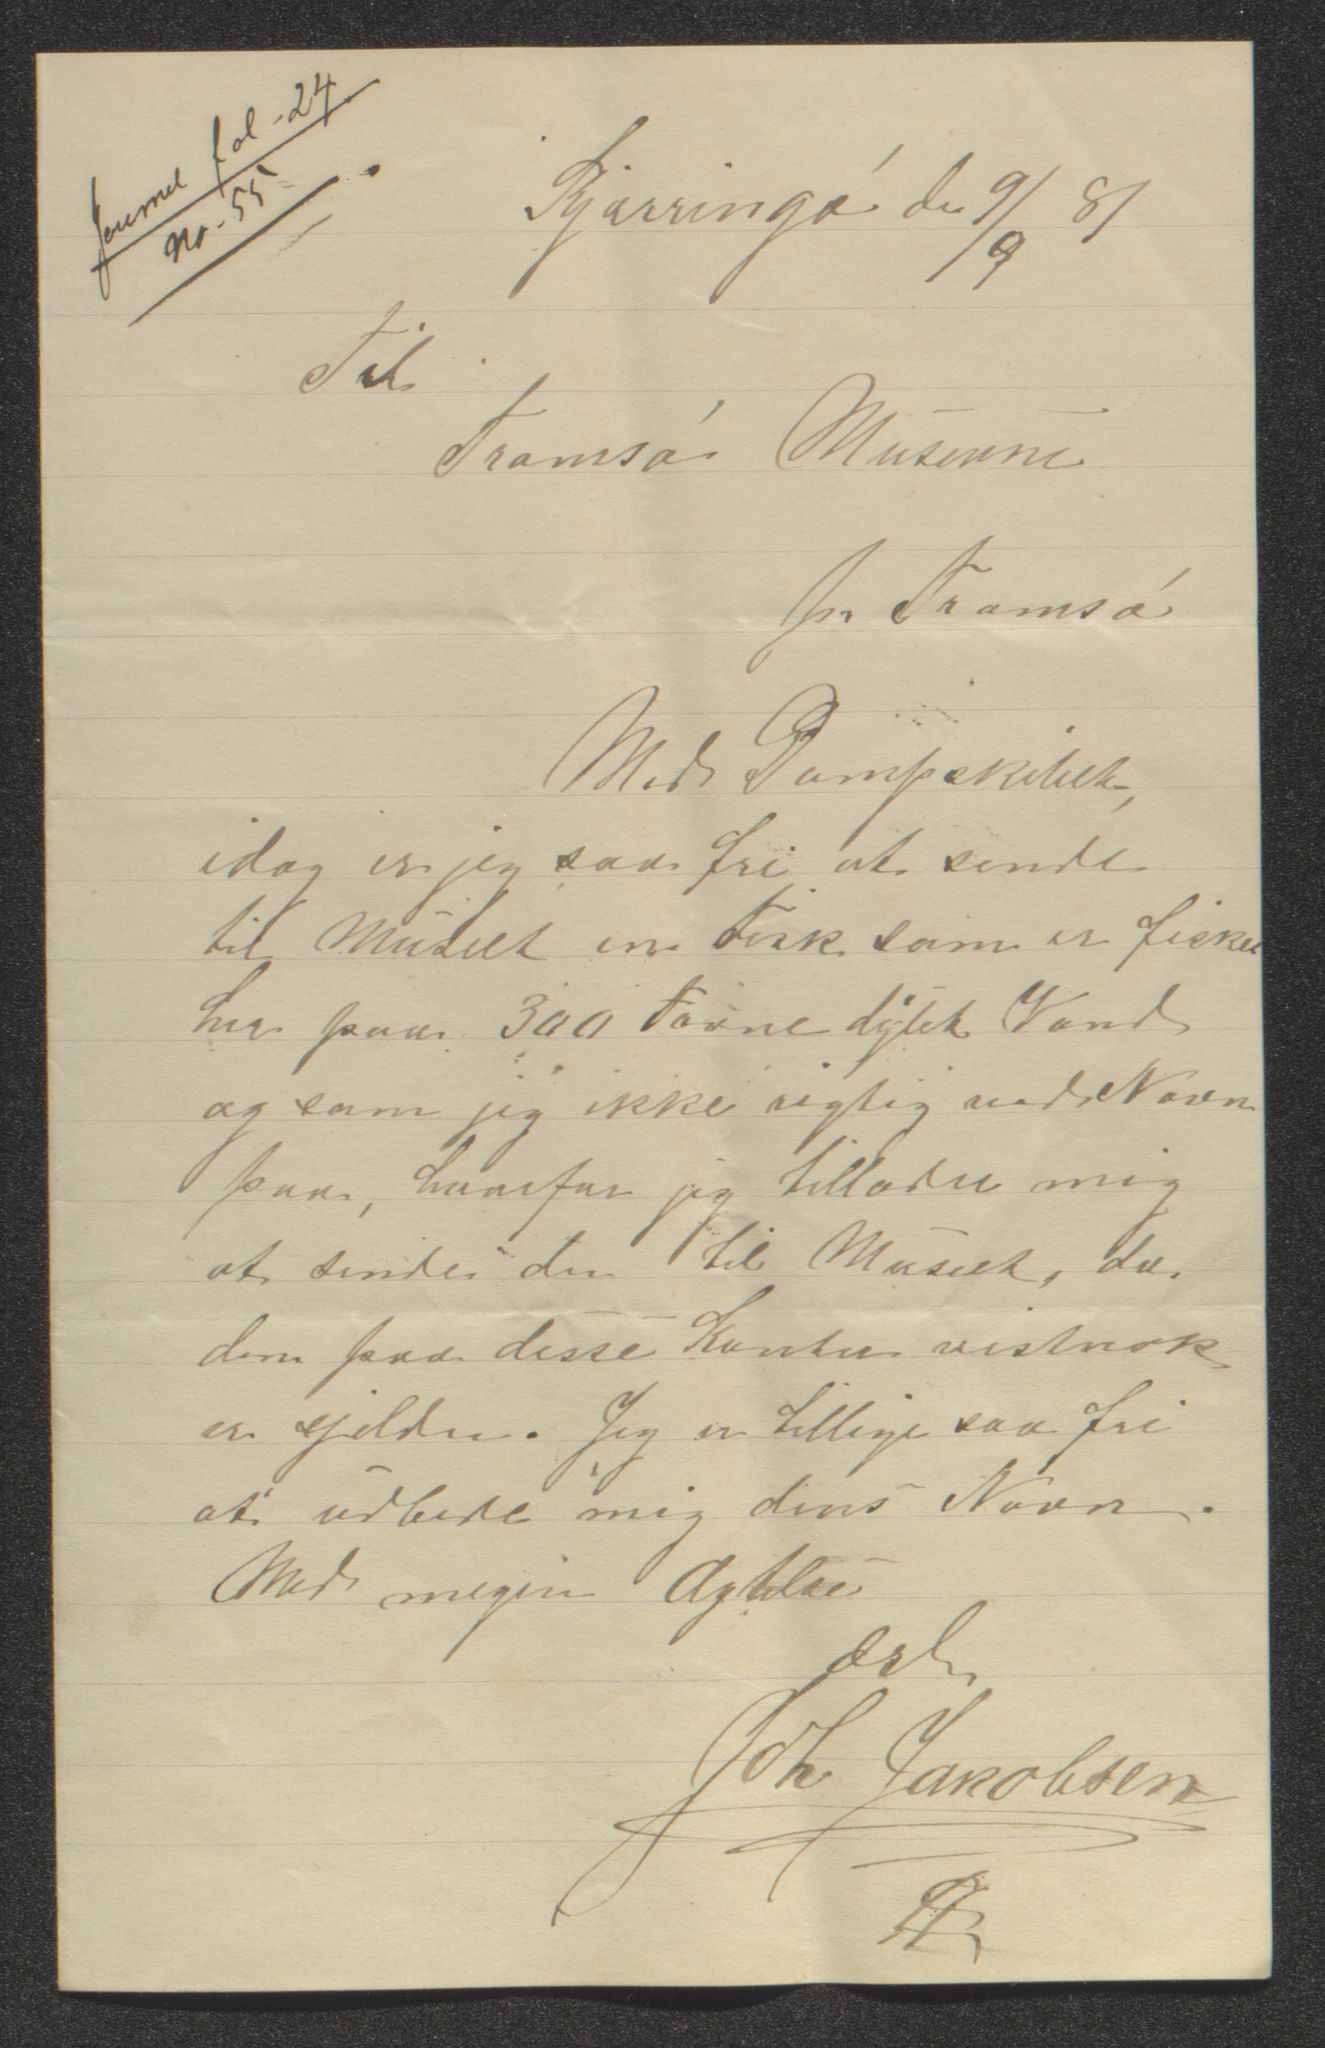 Journal fol - 24.
No - 55
Kjærringø d. 9/9 81
Til
Tromsø Museum
pr Tromsø
Med Dampskibet,
idag er jeg saa fri at sende
til Museet en Fisk som er fisket
her paa 300 Favne dybt Vand
og som jeg ikke rigtig ved Navn
paa, hvorfor jeg tillader mig
at sende den til Museet, da
den paa disse Kanter vistnok
er sjelden. Jeg er tillige saa fri
at udbede mig dens Navn.
Med megen Agtelse
ærb.
Joh Jakobsen